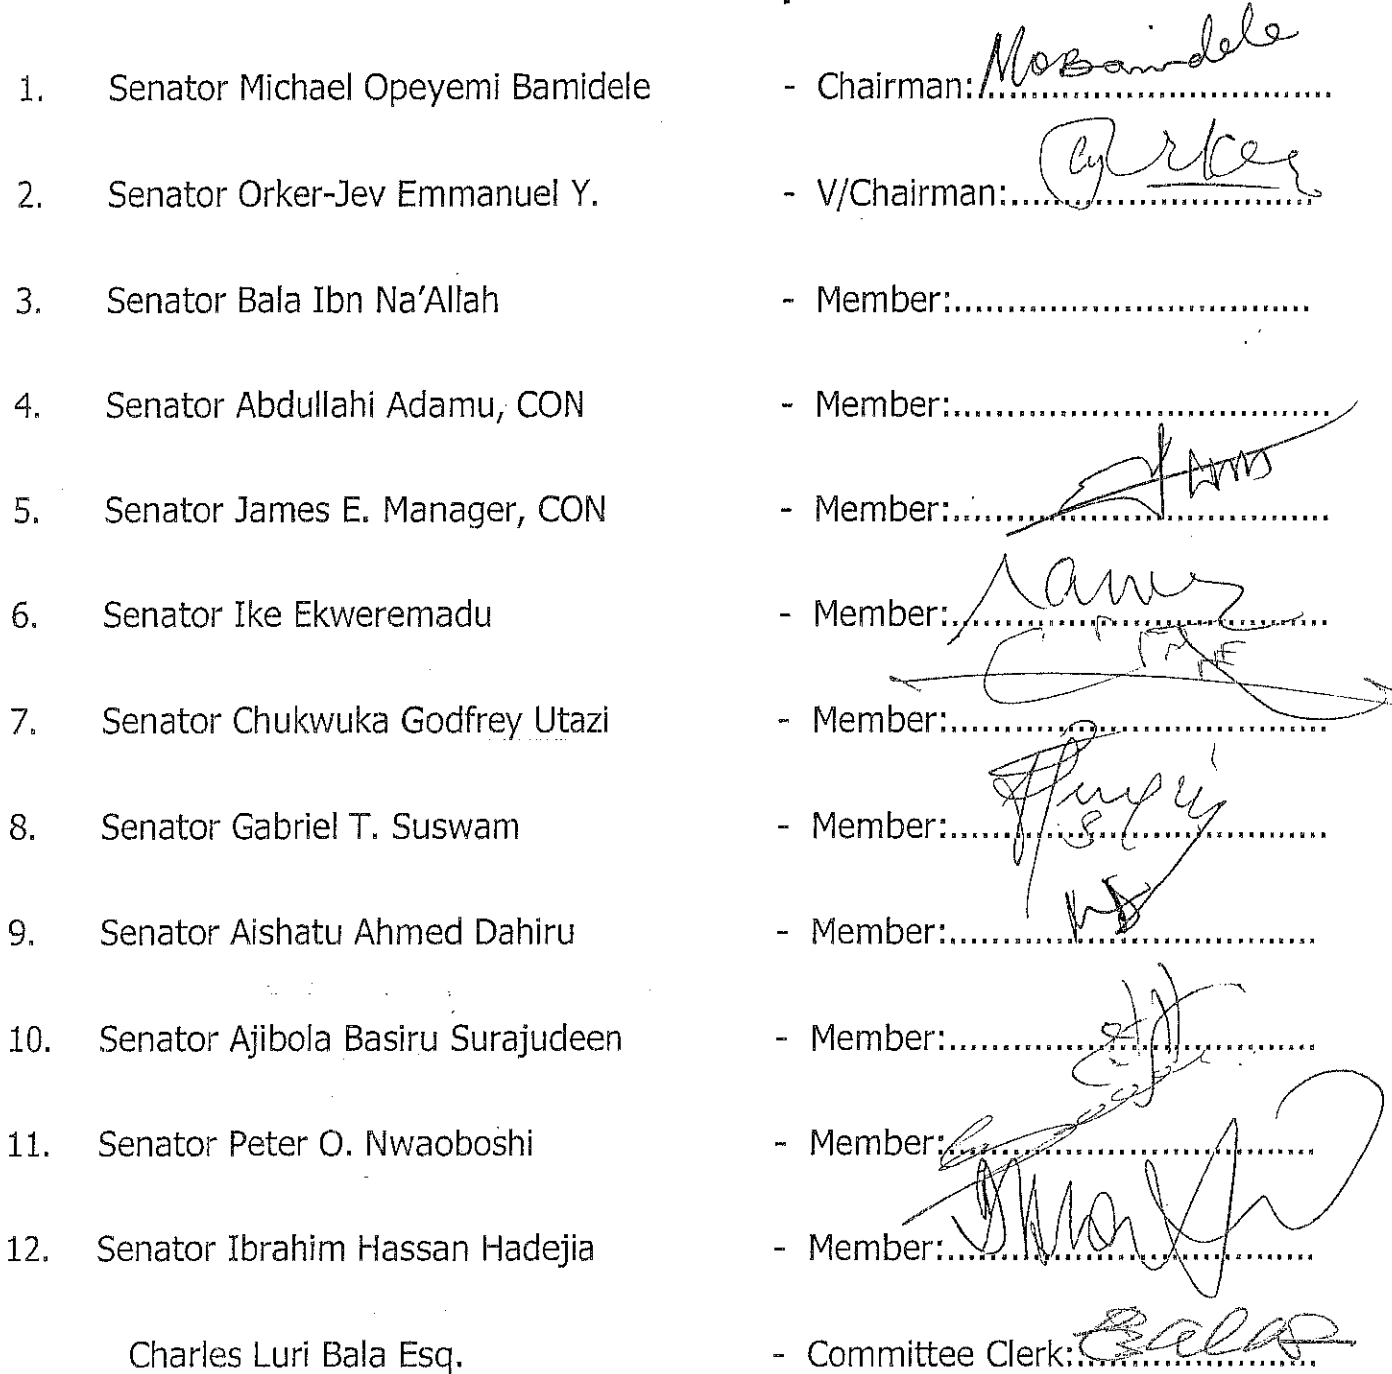 1. Senator Michael Opeyemi Bamidele - Chairman:.......... MOBamidele
2. Senator Orker-Jev Emmanuel Y. - V/Chairman:..........
3. Senator Bala Ibn Na'Allah - Member:..........
4. Senator Abdullahi Adamu, CON - Member:..........
5. Senator James E. Manager, CON - Member:..........
6. Senator Ike Ekweremadu - Member:..........
7. Senator Chukwuka Godfrey Utazi - Member:..........
8. Senator Gabriel T. Suswam - Member:..........
9. Senator Aishatu Ahmed Dahiru - Member:..........
10. Senator Ajibola Basiru Surajudeen - Member:..........
11. Senator Peter O. Nwaoboshi - Member:..........
12. Senator Ibrahim Hassan Hadejia - Member:..........
Charles Luri Bala Esq. - Committee Clerk:..........